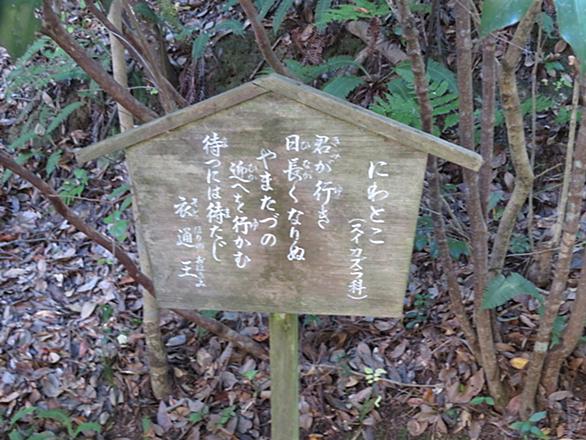 にわとこ
(スイカズラ科)
君が行き
日長くなりぬ
やまたづの
迎へを行かむ
待つには待たじ
衣通王